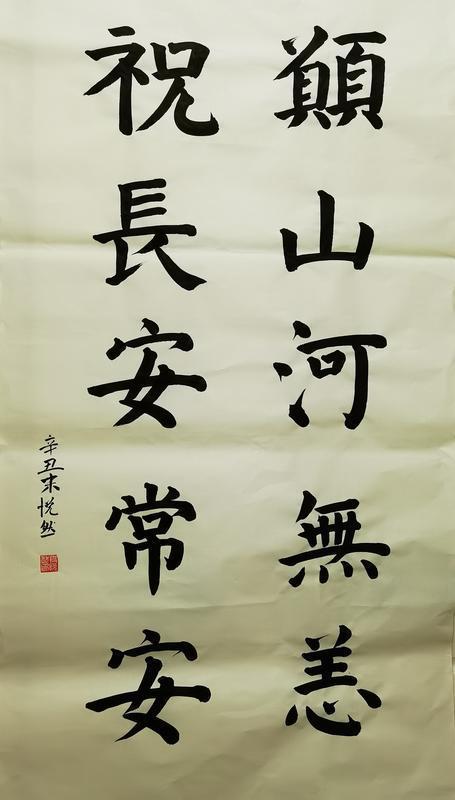 願山河無恙
祝長安常安
辛丑末悦然